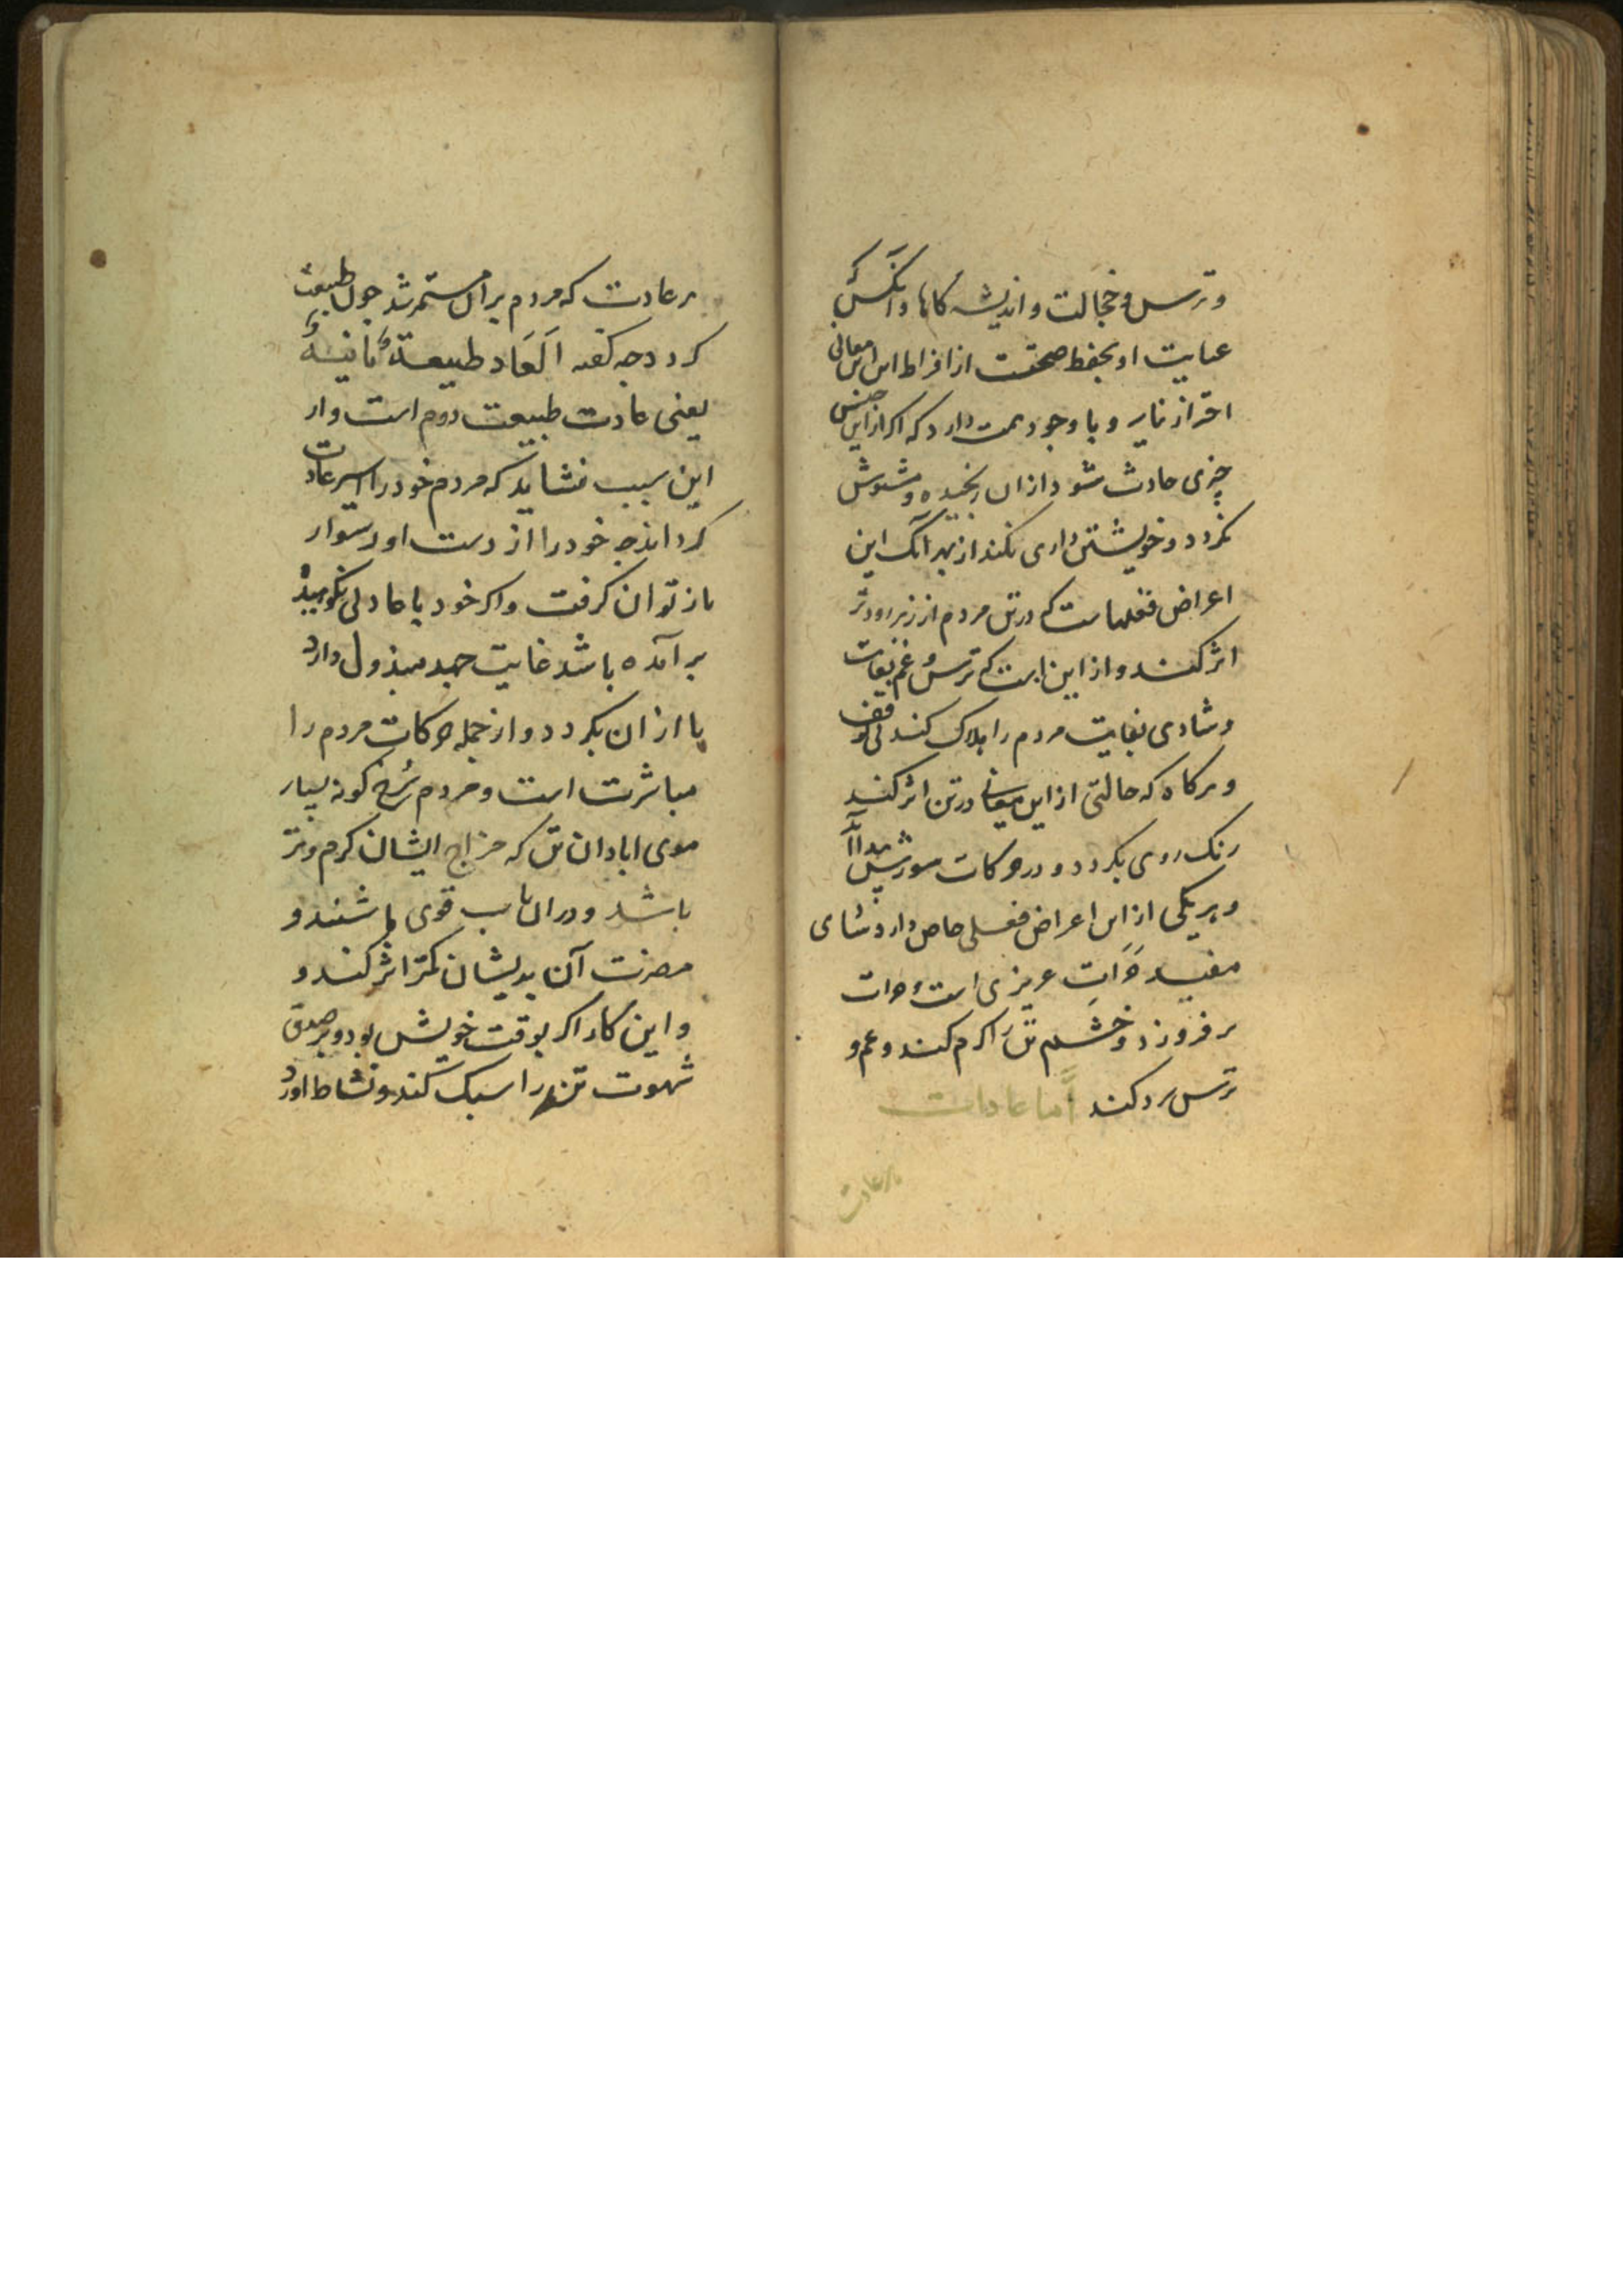 و ترس و خجالت و اندیشه کاها و آنکس که
عنایت او بحفظ صحتست از افراط این معانی
احتراز نماید و با وجود همت دارد که اکر ازین جنس
چیزی حادث شود از ان رنجیده و مشوش
نکردد و خویشتن داری بکند از بهر آنک این
اعراض فعلهاست که در تن مردم از زهر زودتر
اثر کنند و از این است که ترس و غم بغایت
و شادی بغایت مردم را هلاک کند بی توقف
و هرکاه که حالتی از این معانی در تن اثر کند
رنک روی بکردد و در حرکات
و هریکی از این اعراض فعلی خاص دارد شادی
مفید حرارت غریزی است و حرارت
بر فروزد و خشم تن را کرم کند و غم و
ترس سرد کند اما عادات
هر عادت
هر عادت که مردم بر آن مستمر شد چون طبیعت
کردد چه کفته اند العاد طبیعة ثانیة
یعنی عادت طبیعت دوم است و از
این سبب نشاید که مردم خود را اسیر عادت
کرداند چه خود را از دست او دشوار
باز توان کرفت و اکر خود با عادتی نکوهیده
بر آمده باشد غایت جهد مبذول دارد
تا از ان بکردد و از جمله حرکات مردم را
مباشرت است و مردم سرخ کونه بسیار
موی ابادان تن که مزاج ایشان کرم و تر
باشد و در ان باب قوی باشند و
مضرت آن بدیشان کمتر اثر کند و
و این کار اکر بوقت خویش بود و بر صدق
شهوت تن را سبک کند و نشاط اورد